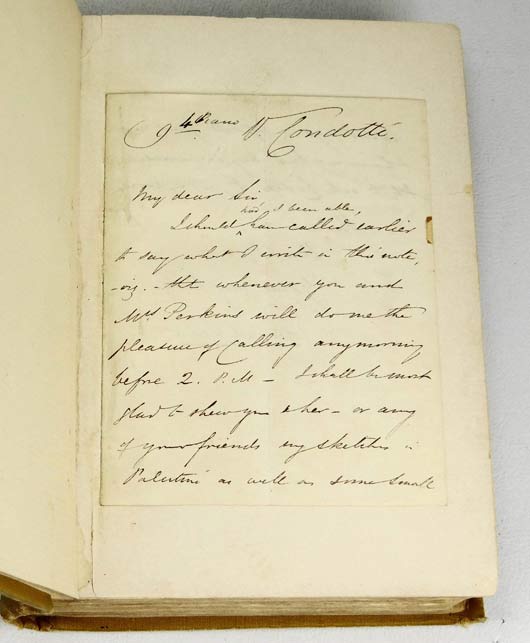 9 4th Piano V. Condotti.
My dear Sir
had I been able,
I should have called earlier
to say what I write in this note,
- viz. - tht whenever you and
Mrs Perkins will do me the
pleasure of calling any morning
before 2. P.M - I shall be most
glad to shew you & her - or any
of your friends my sketches in
Palestine as well as some small